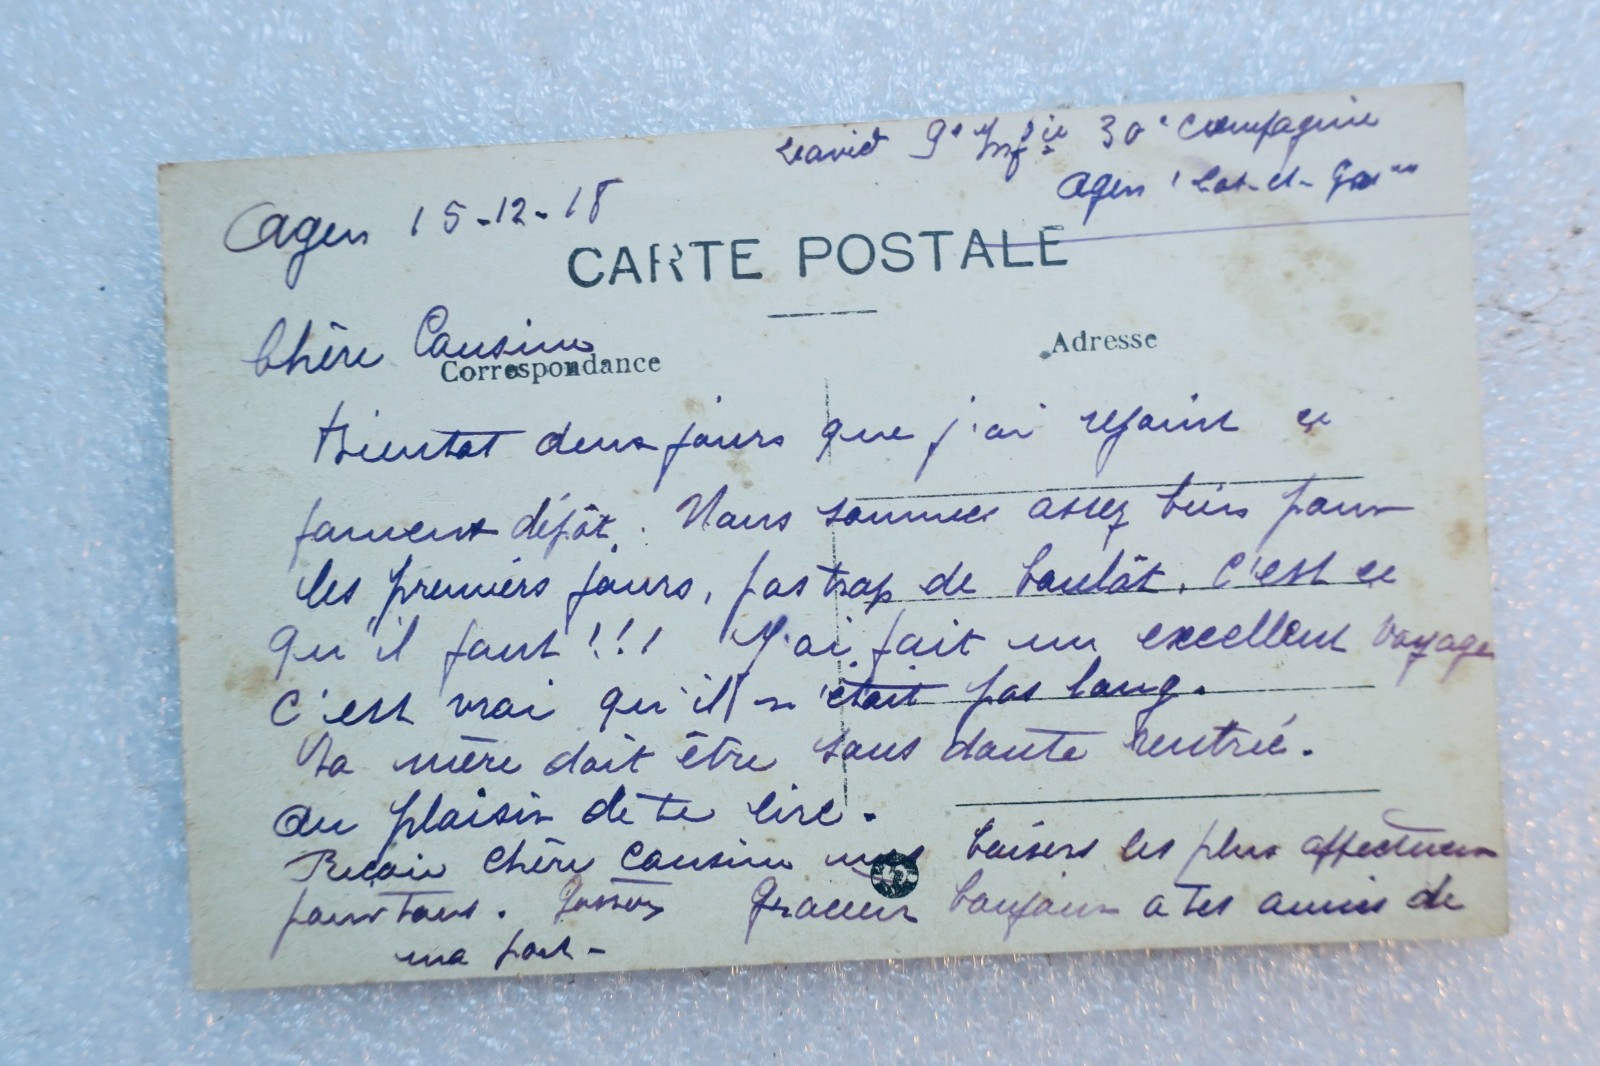 David 9e Infie 30e Compagnie
Agen Lot-et-Gar
Agen 15-12-18
CARTE POSTALE
Chère Cousine
Correspondance
Adresse
Bientot deux jours que j'ai rejoint ce
fameux dépôt. Nous sommes assez bien pour
les premiers jours, pas trop de boulôt, c'est ce
qu'il faut!!! J'ai fait un excellent voyage
c'est vrai qu'il n'était pas long.
Ta mère doit être sans doute rentrée.
Au plaisir de te lire.
Reçois chère cousine mes baisers les plus affectueux
pour tous. bonjour a tes amies de
ma part -